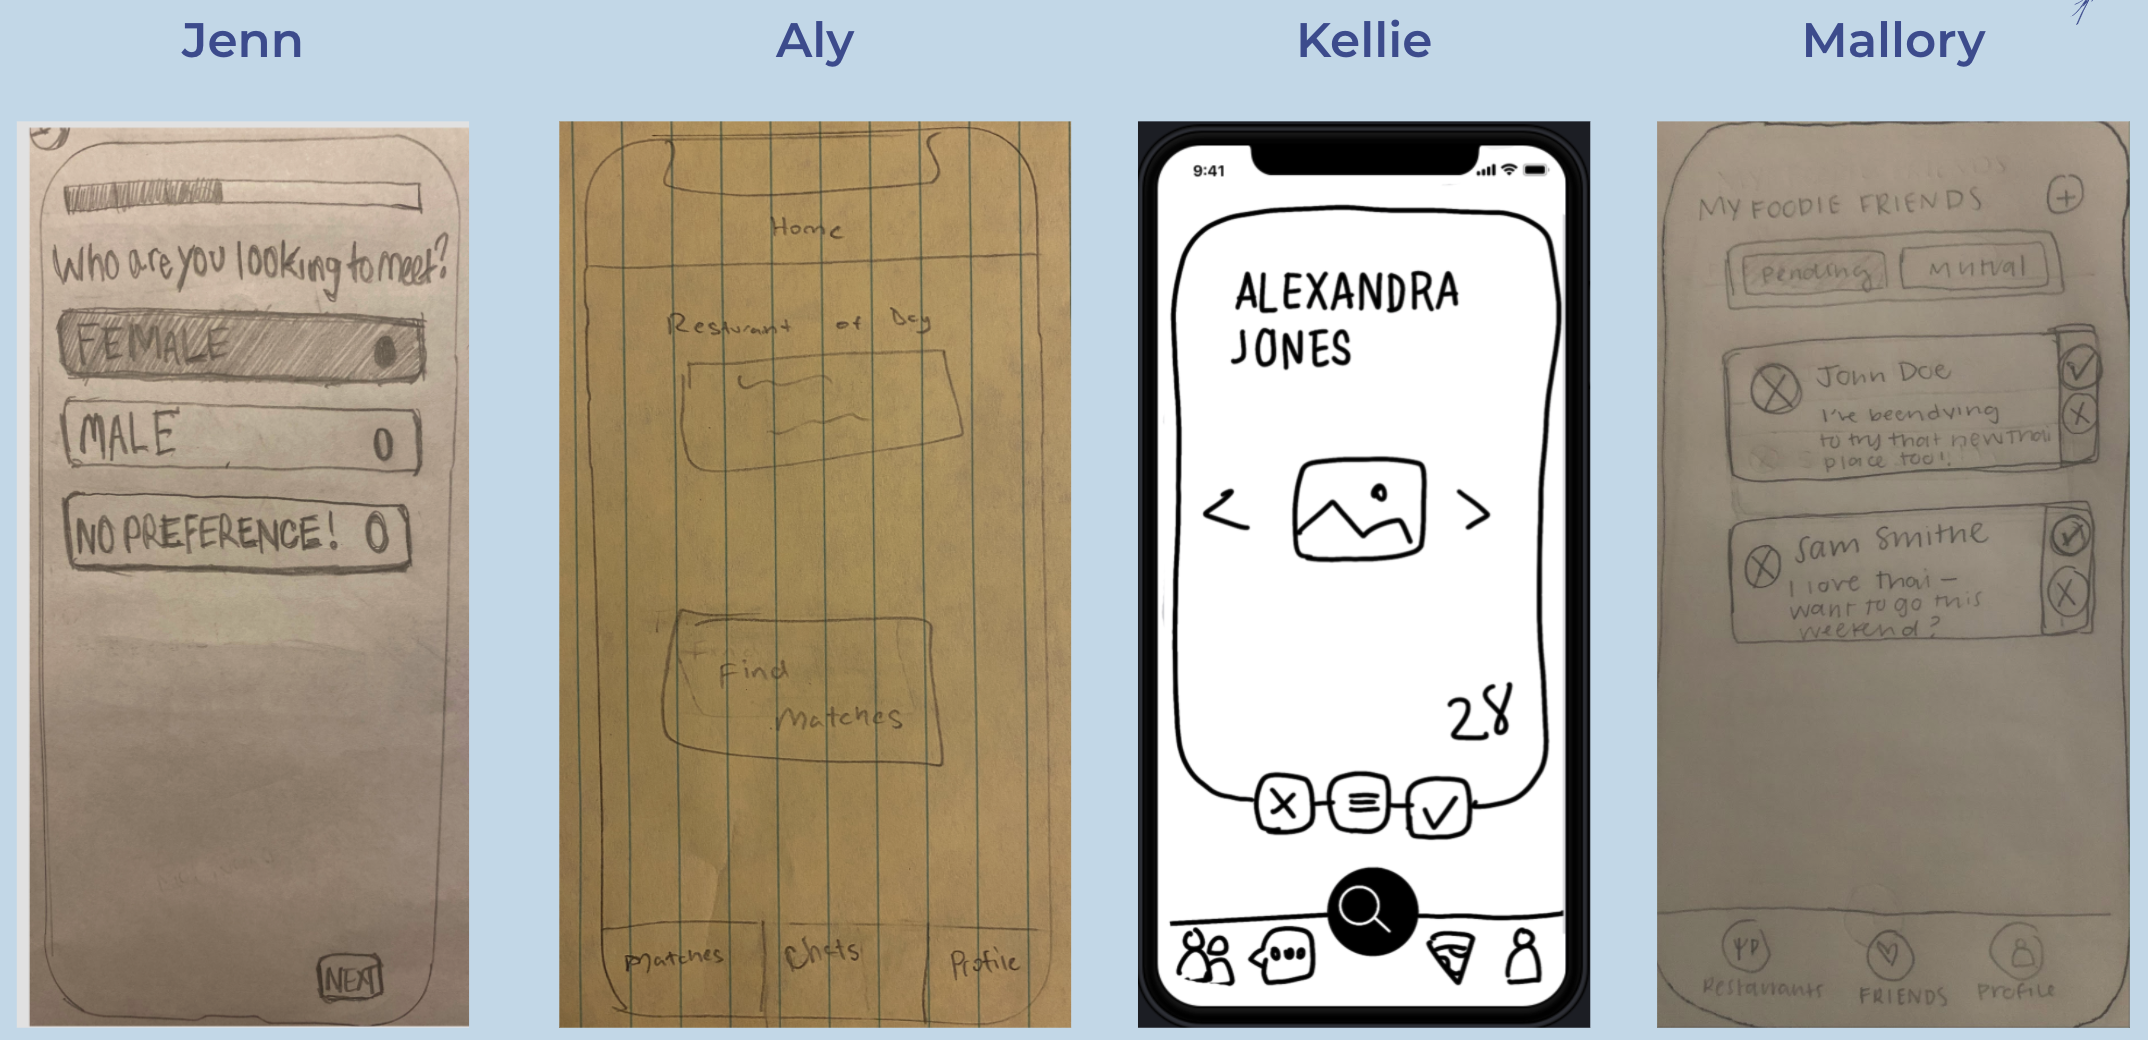 Jenn
Aly
Kellie
Mallory
Who are you looking to meet?
FEMALE
MALE
NO PREFERENCE!
NEXT
Home
Resturant of Day
Find
Matches
Matches
Chats
Profile
9:41
ALEXANDRA
JONES
28
MY FOODIE FRIENDS
Pending
Mutual
John Doe
I've been dying
to try that new Thai
place too!
Sam Smithe
I love thai –
want to go this
weekend?
Restaurants
FRIENDS
Profile